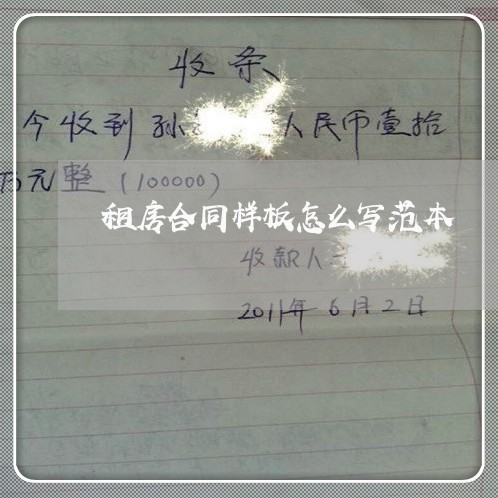 收条
今收到孙 人民币壹拾
万元整(100000)
租房合同样板怎么写范本
收款人
2011年6月2日